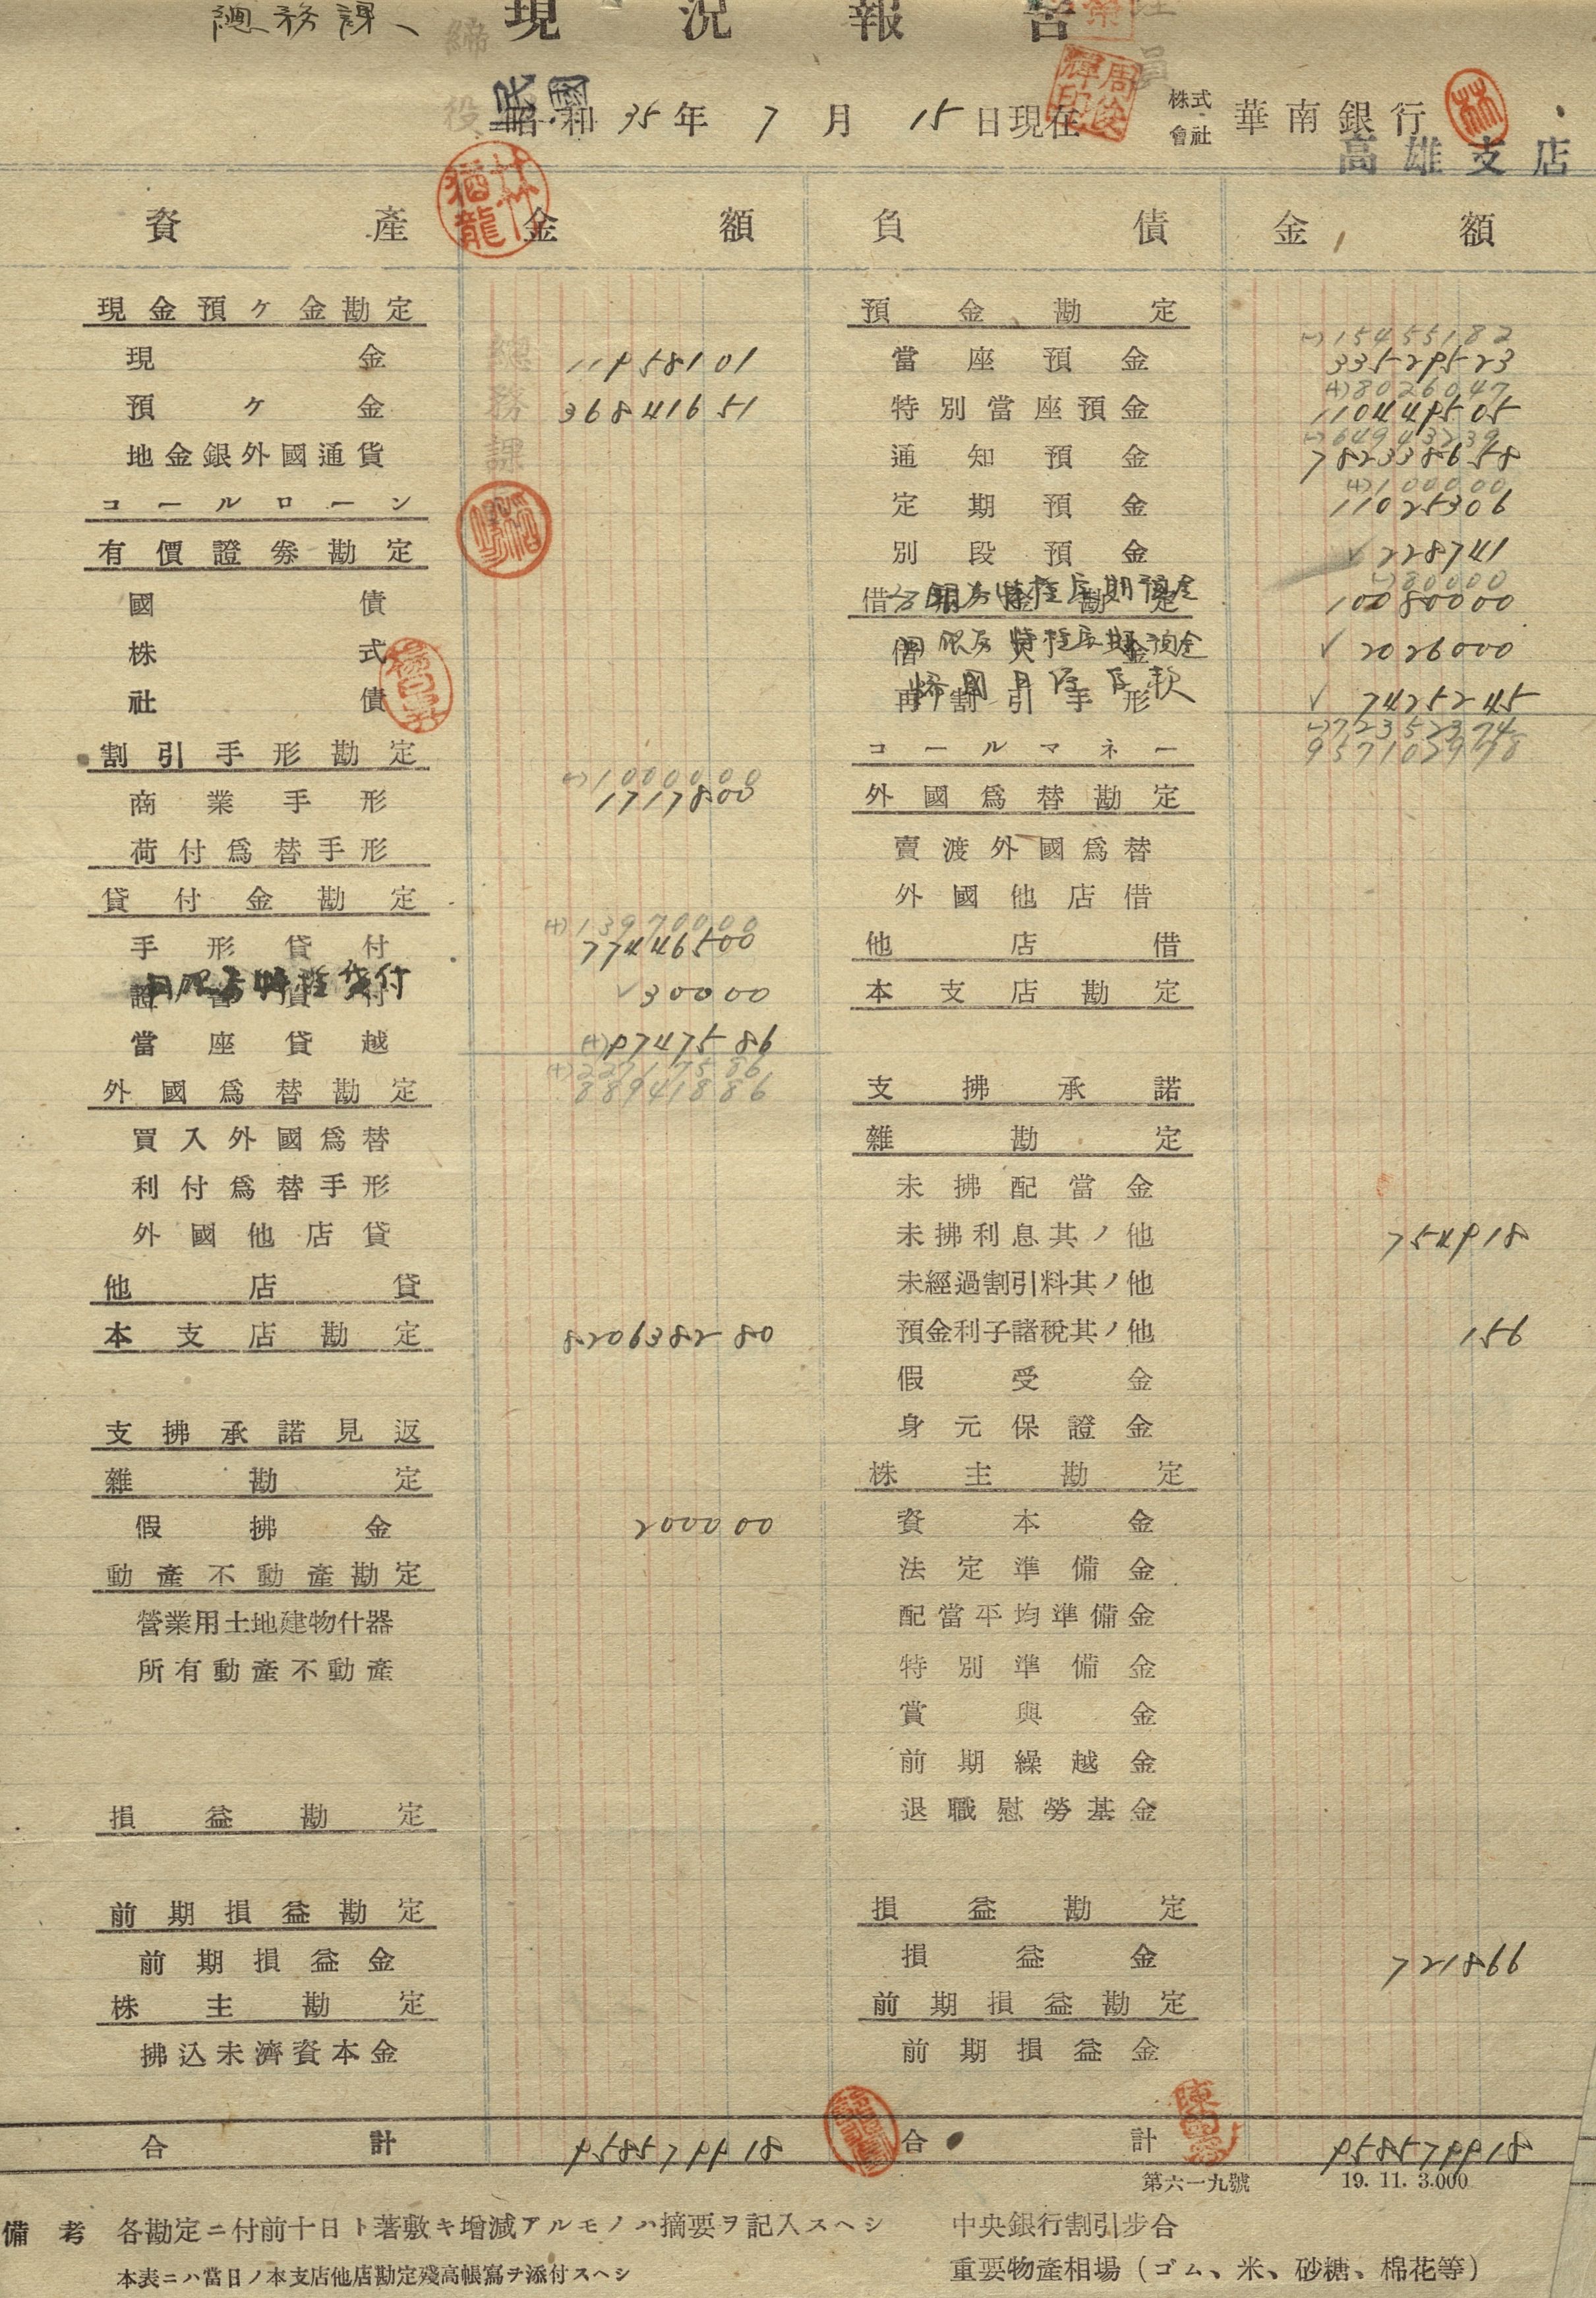 總務課、
現況報告
民國
昭和 35年 7月 15日現在
株式會社 華南銀行
高雄支店
資產 金額 負債 金額
現金預ケ金勘定 預金勘定
(-)15455182
現金 11958101 當座預金 33529523
(+)8026047
預ケ金 36841651 特別當座預金 110449505
(-)64943239
地金銀外國通貨 通知預金 782338658
(+)100000
コールローン 定期預金 11025306
有價證券勘定 別段預金 228741
(-)80000
國債 借用金勘定 10080000
株式 借入金 2026000
社債 再割引手形 7425245
(-)72352374
割引手形勘定 コールマネー 957102978
(-)1000000
商業手形 1717800 外國爲替勘定
荷付爲替手形 賣渡外國爲替
貸付金勘定 外國他店借
(+)13970000
手形貸付 77446500 他店借
證書貸付 30000 本支店勘定
當座貸越 (+)9747586
(+)22717586
外國爲替勘定 88941886 支拂承諾
買入外國爲替 雜勘定
利付爲替手形 未拂配當金
外國他店貸 未拂利息其ノ他 754918
他店貸 未經過割引料其ノ他
本支店勘定 820638280 預金利子諸稅其ノ他 156
假受金
支拂承諾見返 身元保證金
雜勘定 株主勘定
假拂金 200000 資本金
動產不動產勘定 法定準備金
營業用土地建物什器 配當平均準備金
所有動產不動產 特別準備金
賞與金
前期繰越金
損益勘定 退職慰勞基金
前期損益勘定 損益勘定
前期損益金 損益金 721866
株主勘定 前期損益勘定
拂込未濟資本金 前期損益金
合計 958579918 合計 958579918
第六一九號 19. 11. 3.000
備考 各勘定ニ付前十日ト著敷キ增減アルモノハ摘要ヲ記入スヘシ 中央銀行割引步合
本表ニハ當日ノ本支店他店勘定殘高帳寫ヲ添付スヘシ 重要物產相場(ゴム、米、砂糖、棉花等)